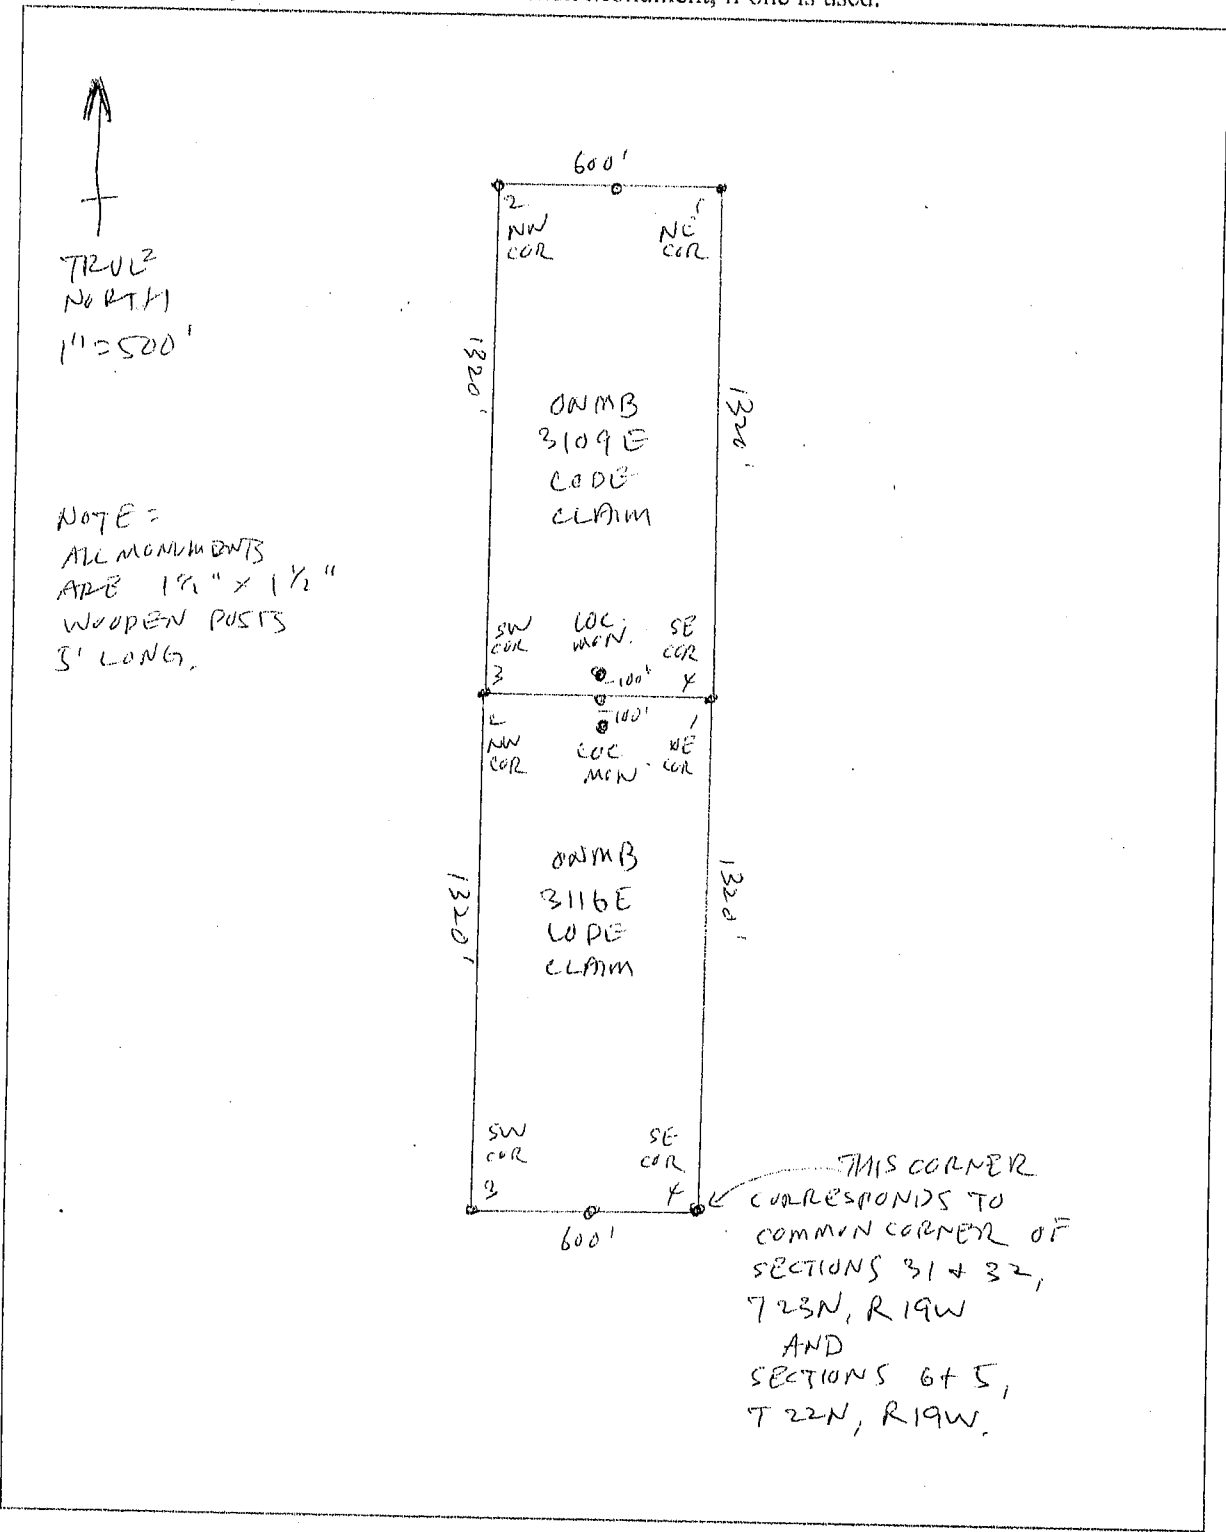 Monument, if one is used.
TRUE
NORTH
1"=500'
NOTE =
ALL MONUMENTS
ARE 1½" x 1½"
WOODEN POSTS
LONG.
600'
2
NW
COR
1
NE
COR.
1320'
1320'
ONMB
3109E
LODE
CLAIM
SW
COR
3
LOC.
MON.
SE
COR
4
100'
100'
2
NW
COR
LOC
MON.
1
NE
COR
1320'
1320'
ONMB
3116E
LODE
CLAIM
SW
COR
3
SE
COR
4
600'
THIS CORNER
CORRESPONDS TO
COMMON CORNER OF
SECTIONS 31 + 32,
T 23N, R 19W
AND
SECTIONS 6 + 5,
T 22N, R 19W.